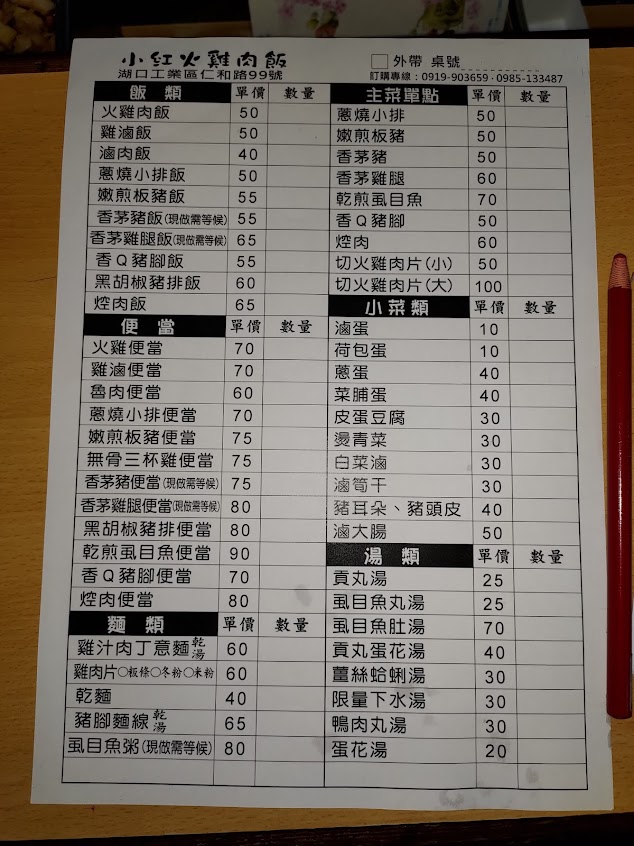 小紅火雞肉飯
湖口工業區仁和路99號
外帶 桌號
訂購專線：0919-903659·0985-133487
飯類 單價 數量
火雞肉飯 50
雞滷飯 50
滷肉飯 40
蔥燒小排飯 50
嫩煎板豬飯 55
香茅豬飯(現做需等候) 55
香茅雞腿飯(現做需等候) 65
香Q豬腳飯 55
黑胡椒豬排飯 60
焢肉飯 65
便當 單價 數量
火雞便當 70
雞滷便當 70
魯肉便當 60
蔥燒小排便當 70
嫩煎板豬便當 75
無骨三杯雞便當 75
香茅豬便當(現做需等候) 75
香茅雞腿便當(現做需等候) 80
黑胡椒豬排便當 80
乾煎虱目魚便當 90
香Q豬腳便當 70
焢肉便當 80
麵類 單價 數量
雞汁肉丁意麵乾湯 60
雞肉片○粄條○冬粉○米粉 60
乾麵 40
豬腳麵線乾湯 65
虱目魚粥(現做需等候) 80
主菜單點 單價 數量
蔥燒小排 50
嫩煎板豬 50
香茅豬 50
香茅雞腿 60
乾煎虱目魚 70
香Q豬腳 50
焢肉 60
切火雞肉片(小) 50
切火雞肉片(大) 100
小菜類 單價 數量
滷蛋 10
荷包蛋 10
蔥蛋 40
菜脯蛋 40
皮蛋豆腐 30
燙青菜 30
白菜滷 30
滷筍干 30
豬耳朵、豬頭皮 40
滷大腸 50
湯類 單價 數量
貢丸湯 25
虱目魚丸湯 25
虱目魚肚湯 70
貢丸蛋花湯 40
薑絲蛤蜊湯 30
限量下水湯 30
鴨肉丸湯 30
蛋花湯 20